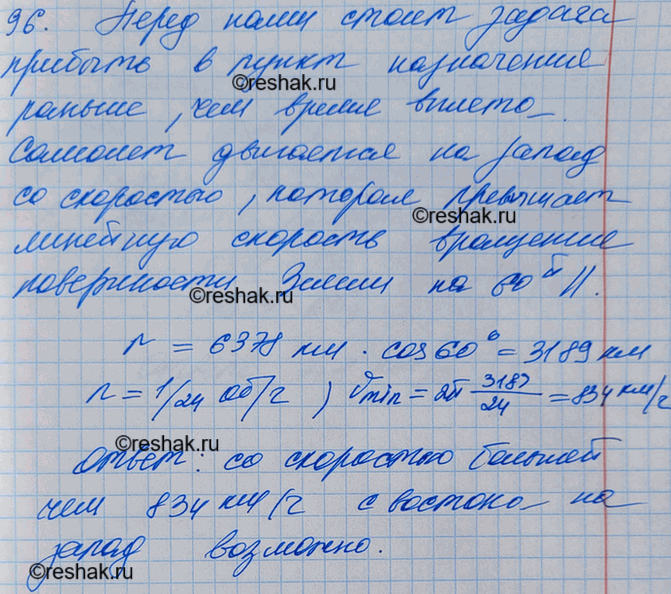 96. Перед нами стоит задача
прибыть в пункт назначения
©reshak.ru
раньше, чем время вылета.
Самолет двигается на запад
со скоростью, которая превышает
©reshak.ru
линейную скорость вращения
поверхности Земли на 60й //.
©reshak.ru
r = 6378 км · cos60° = 3189 км
n = 1/24 об/г ; Vmin = 2π 3189/24 = 834 км/г
©reshak.ru
Ответ: со скоростью большей
чем 834 км/г с востока на
©reshak.ru
запад возможно.
©reshak.ru